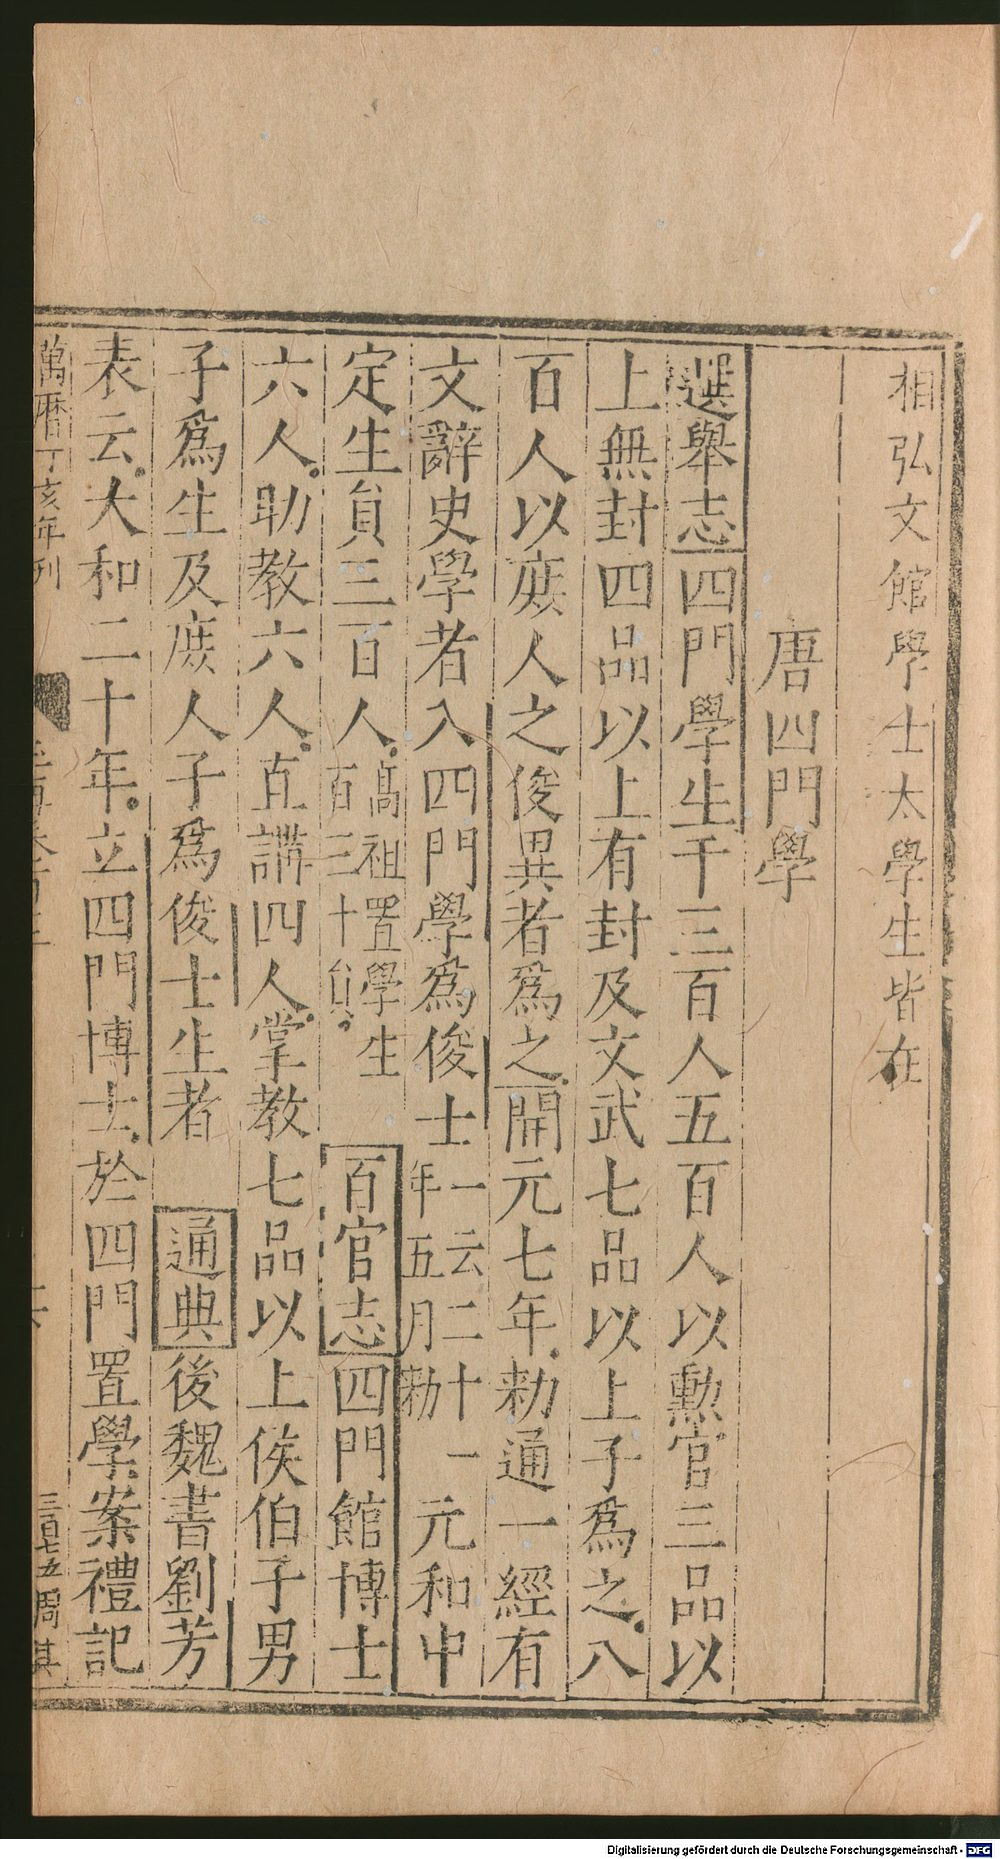 相弘文館學士太學生皆在
唐四門學
選舉志四門學生千三百人五百人以勲官三品以
上無封四品以上有封及文武七品以上子爲之八
百人以庶人之俊異者爲之開元七年勑通一經有
文辭史學者入四門學爲俊士一云二十一年五月勑元和中
定生負三百人高祖置學生百三十負百官志四門館博士
六人助教六人直講四人掌教七品以上侯伯子男
子爲生及庶人子爲俊士生者通典後魏書劉芳
表云大和二十年立四門博士於四門置學案禮記
萬曆丁亥年刊
三百七五周其
Digitalisierung gefördert durch die Deutsche Forschungsgemeinschaft - DFG